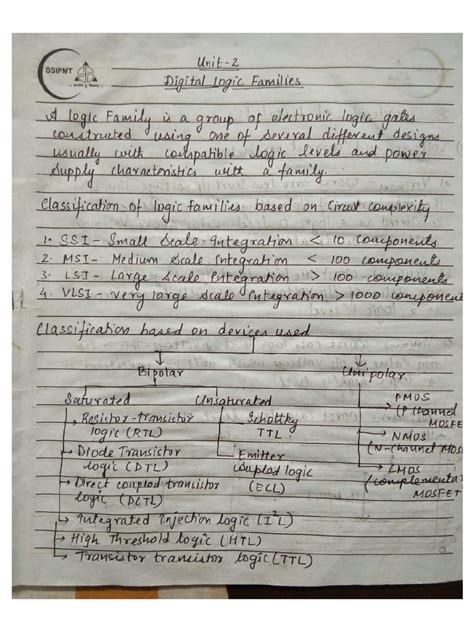 SSIPMT
Unit-2
Digital Logic Families
A logic Family is a group of electronic logic gates
constructed using one of several different designs
usually with compatible logic levels and power
supply characteristics with a family.
Classification of logic families based on Circuit complexity
1. SSI - Small Scale Integration < 10 components
2. MSI - Medium scale Integration < 100 components
3. LSI - Large Scale Integration > 100 components
4. VLSI - Very large scale Integration > 1000 component
Classification based on devices used
Bipolar
Unipolar
Saturated
Unsaturated
Resistor-transistor
logic (RTL)
Diode Transistor
logic (DTL)
Direct coupled transistor
logic (DCTL)
Integrated Injection logic (I²L)
High Threshold logic (HTL)
Transistor transistor logic (TTL)
Schottky
TTL
Emitter
coupled logic
(ECL)
PMOS
(P channel
MOSFE
NMOS
(N-channel MOSFE
CMOS
(complementar
MOSFET